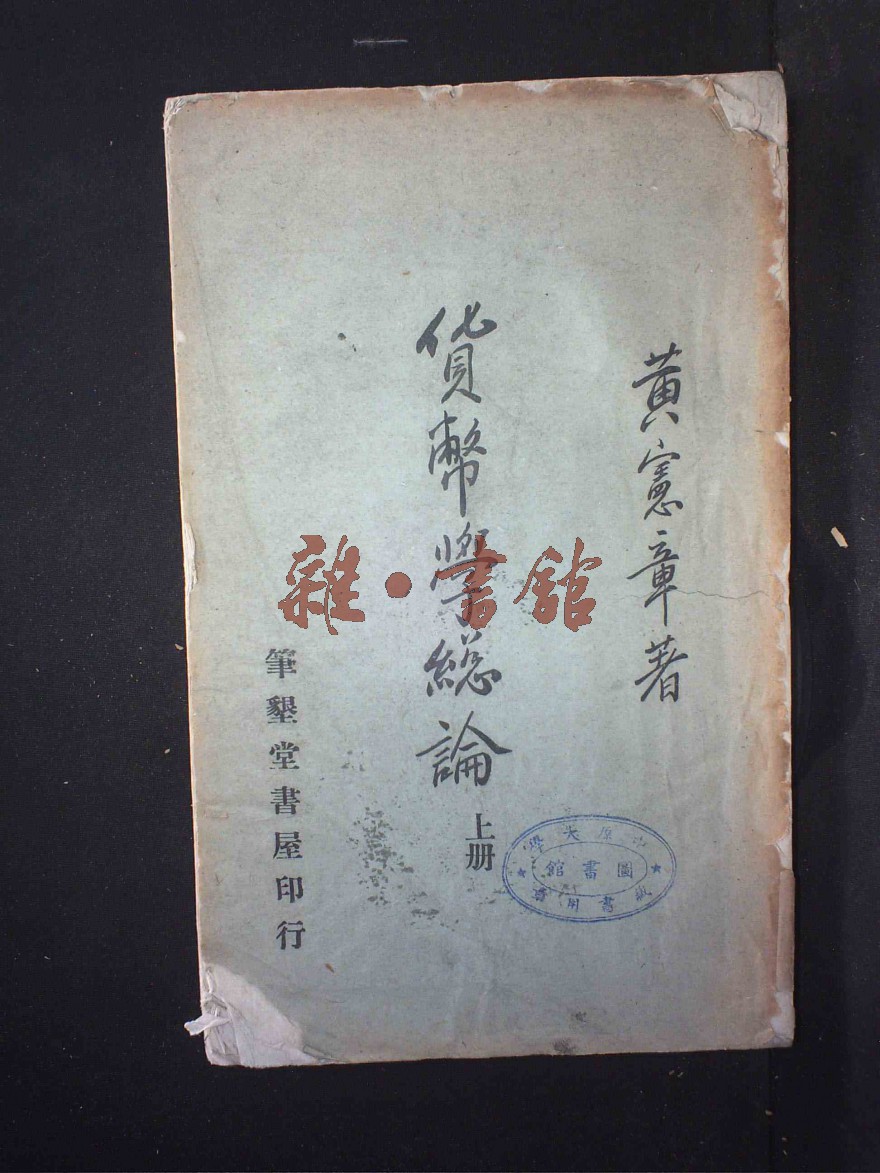 黄憲章著
貨幣學總論
上册
筆墾堂書屋印行
雜·書館
中原大學
圖書館
書用